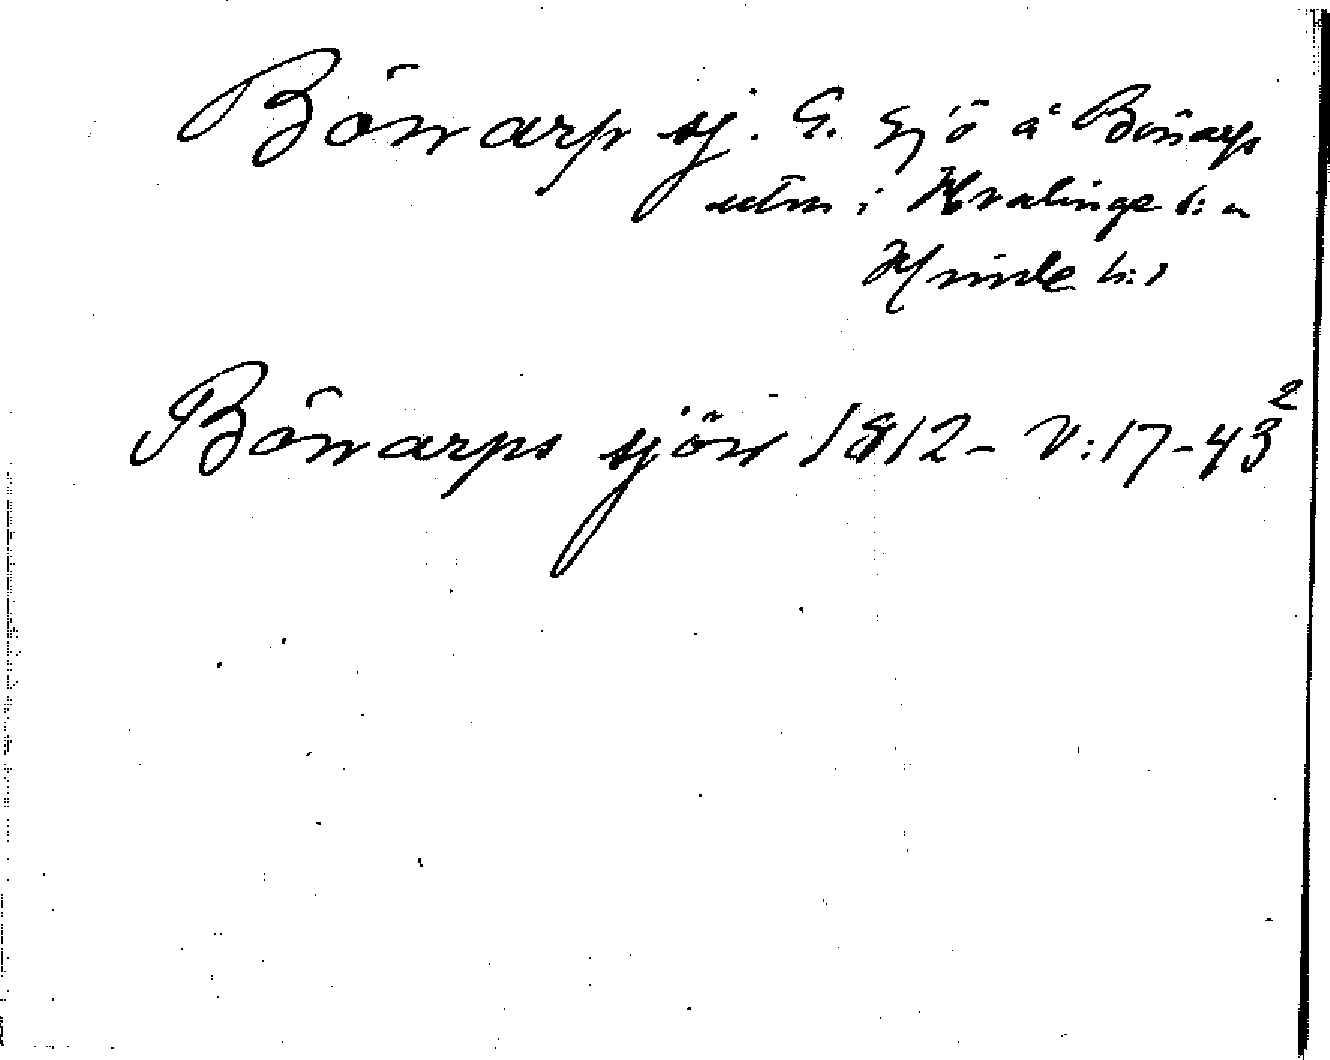 Bönarp sj. G. Sjö å Bönarps
utm i Kvalinge s:n
Himle h:d
Bönarps sjön 1812 - V:17-43²